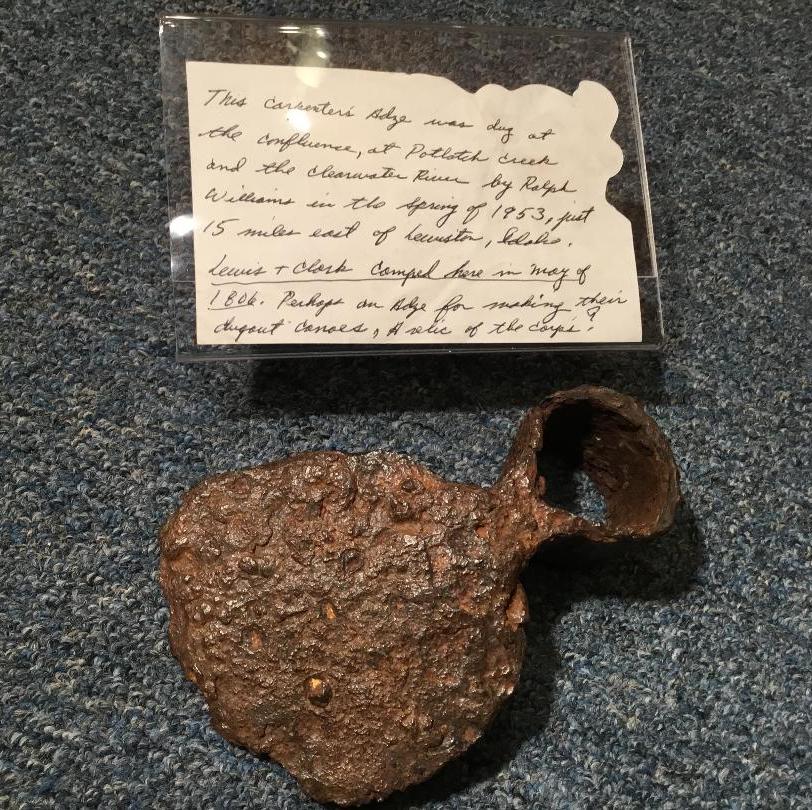 This Carpenter's Adze was dug at
the confluence, at Potlatch Creek
and the Clearwater River by Ralph
Williams in the Spring of 1953, just
15 miles east of Lewiston, Idaho.
Lewis + Clark Camped here in May of
1806. Perhaps an Adze for making their
dugout canoes, A relic of the Corps?